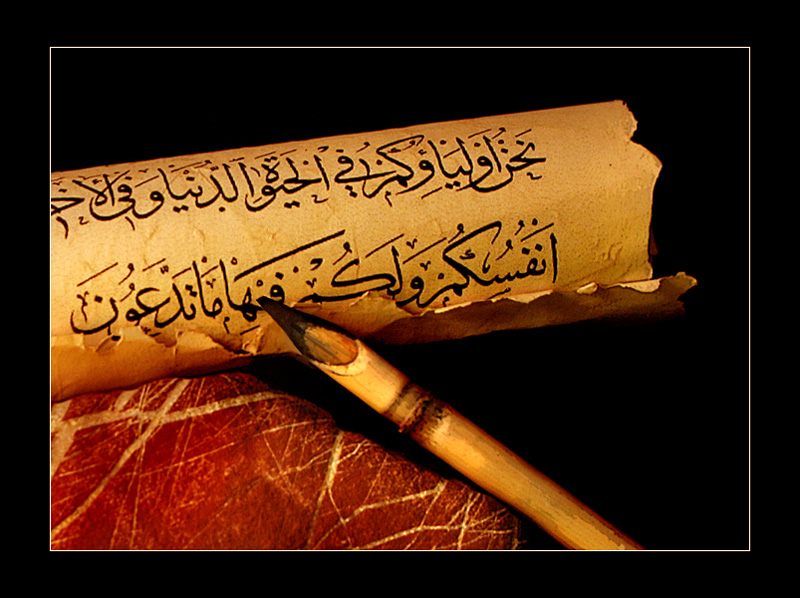 نَحْنُ اَوْلِيَاؤُكُمْ فِي الْحَيٰوةِ الدُّنْيَا وَفِى الْاٰخِ
اَنْفُسُكُمْ وَلَكُمْ فِيْهَا مَا تَدَّعُوْنَ